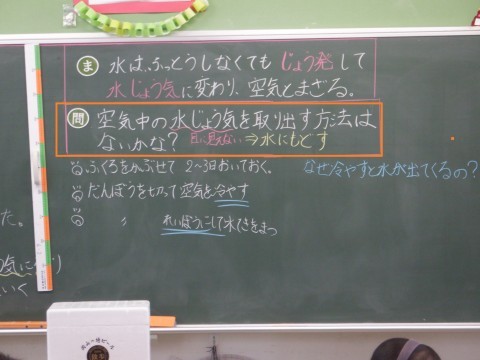 ま 水は、ふっとうしなくても じょう発して
水じょう気に変わり、空気とまざる。
問 空気中の水じょう気を取り出す方法は
ないかな? 目に見えない ⇒水にもどす
ふくろをかぶせて 2〜3日おいておく。
だんぼうを切って空気を冷やす
〃 れいぼうにして水てきをまつ
なぜ冷やすと水が出てくるの?
た。
気に
いく